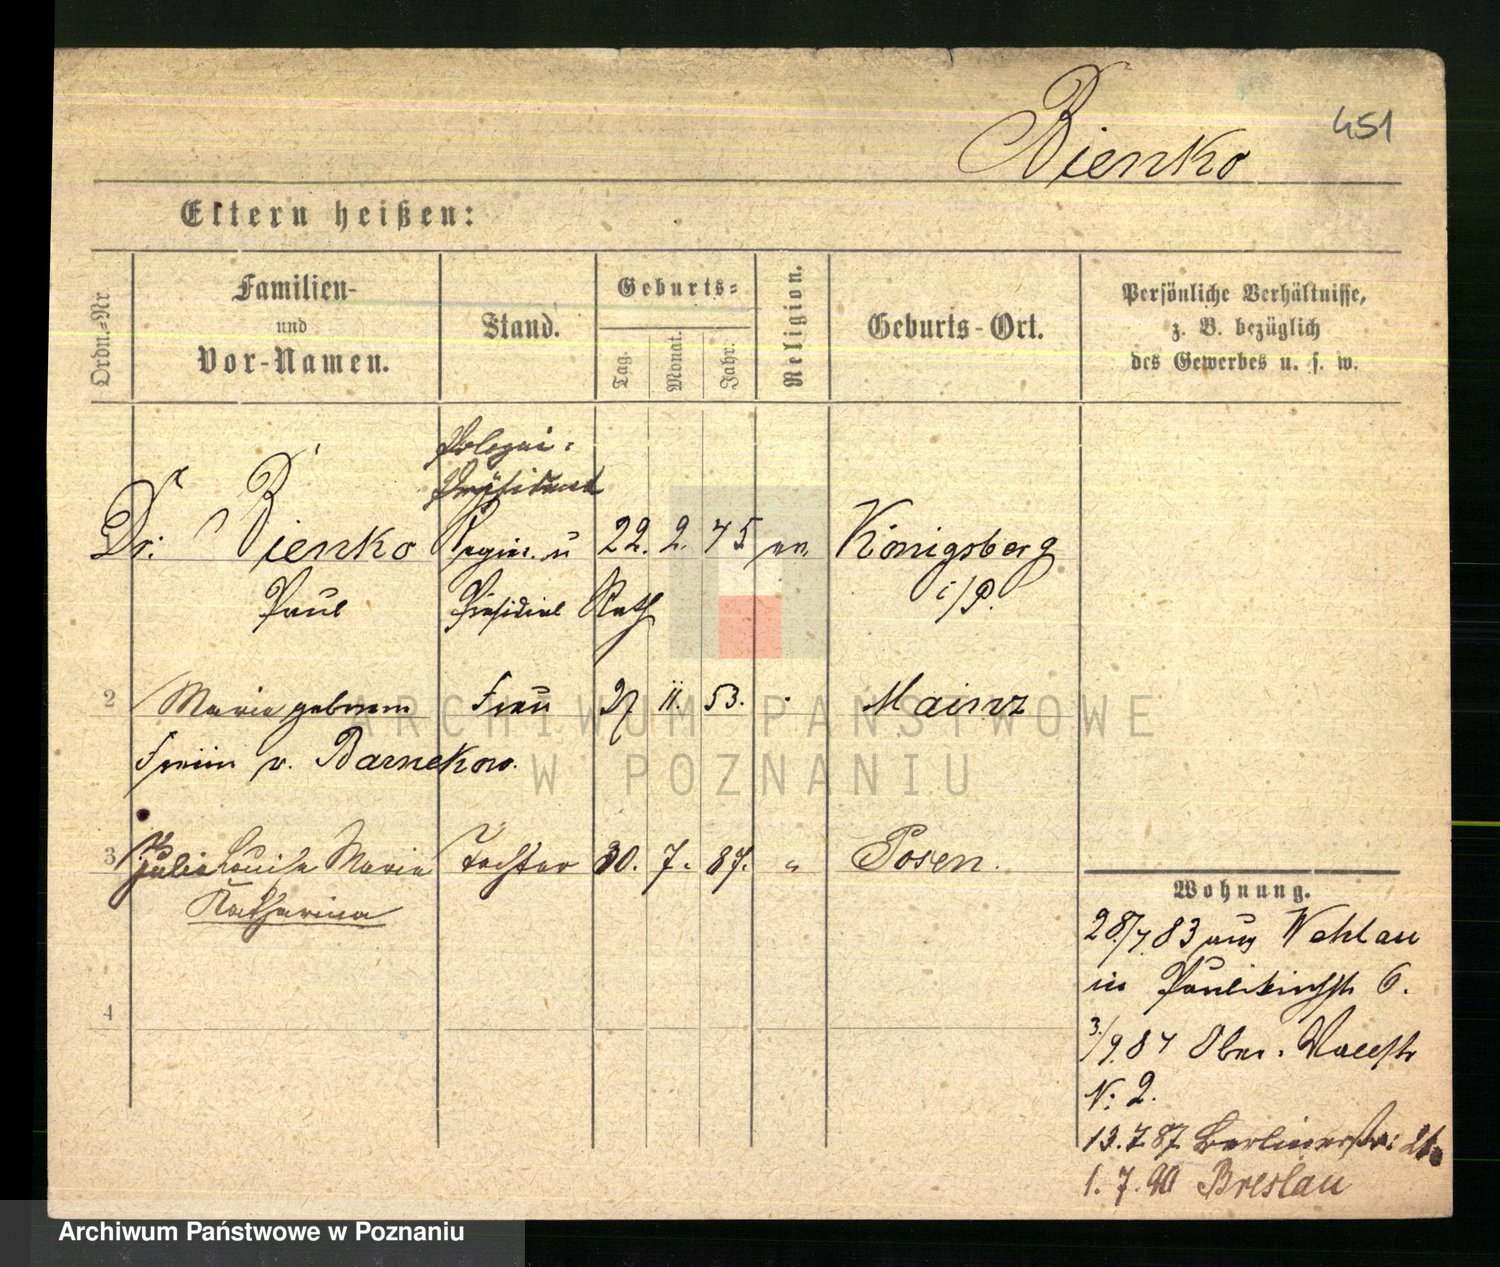 451
Bienko
Eltern heißen:
Ordn.=Nr
Familien-
und
Vor-Namen.
Stand.
Geburts=
Tag.
Monat.
Jahr.
Religion.
Geburts-Ort.
Persönliche Verhältnisse,
z. B. bezüglich
des Gewerbes u. s. w.
Polizei-
Präsident
Dr. Bienko Regier. u 22. 2. 45 ev. Königsberg
Paul Präsidial Rath i/P.
2 Marie geborene Frau 27 11. 53. Mainz
Freiin v. Barnekow.
3 Julie Louise Marie Tochter 30. 7. 87. " Posen.
Katharina
4
Wohnung.
28/7 83 aus Wehlau
in Paulikirchstr 6.
3/9.84 Ober. Wallstr
N: 2.
13.7.87 Berlinerstr:
1.7.90 Breslau
ARCHIWUM PAŃSTWOWE
W POZNANIU
Archiwum Państwowe w Poznaniu